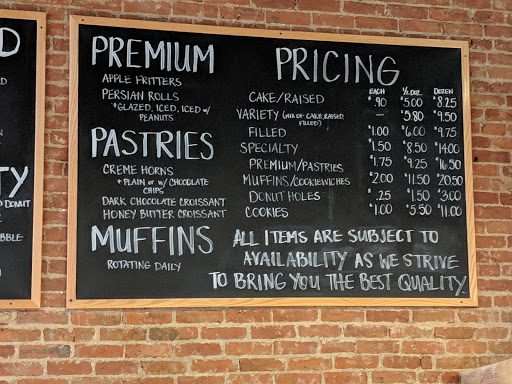 D
TY
DONUT
BBLE
PREMIUM
APPLE FRITTERS
PERSIAN ROLLS
*GLAZED, ICED, ICED W/
PEANUTS
PASTRIES
CREME HORNS
* PLAIN OR W/ CHOCOLATE
CHIPS
DARK CHOCOLATE CROISSANT
HONEY BUTTER CROISSANT
MUFFINS
ROTATING DAILY
PRICING
EACH ½ DOZ. DOZEN
CAKE/RAISED $.90 $5.00 $8.25
VARIETY (MIX OF CAKE, RAISED, FILLED) — $5.80 $9.50
FILLED $1.00 $6.00 $9.75
SPECIALTY $1.50 $8.50 $14.00
PREMIUM/PASTRIES $1.75 $9.25 $16.50
MUFFINS/COOKIEWICHES $2.00 $11.50 $20.50
DONUT HOLES $.25 $1.50 $3.00
COOKIES $1.00 $5.50 $11.00
ALL ITEMS ARE SUBJECT TO
AVAILABILITY AS WE STRIVE
TO BRING YOU THE BEST QUALITY